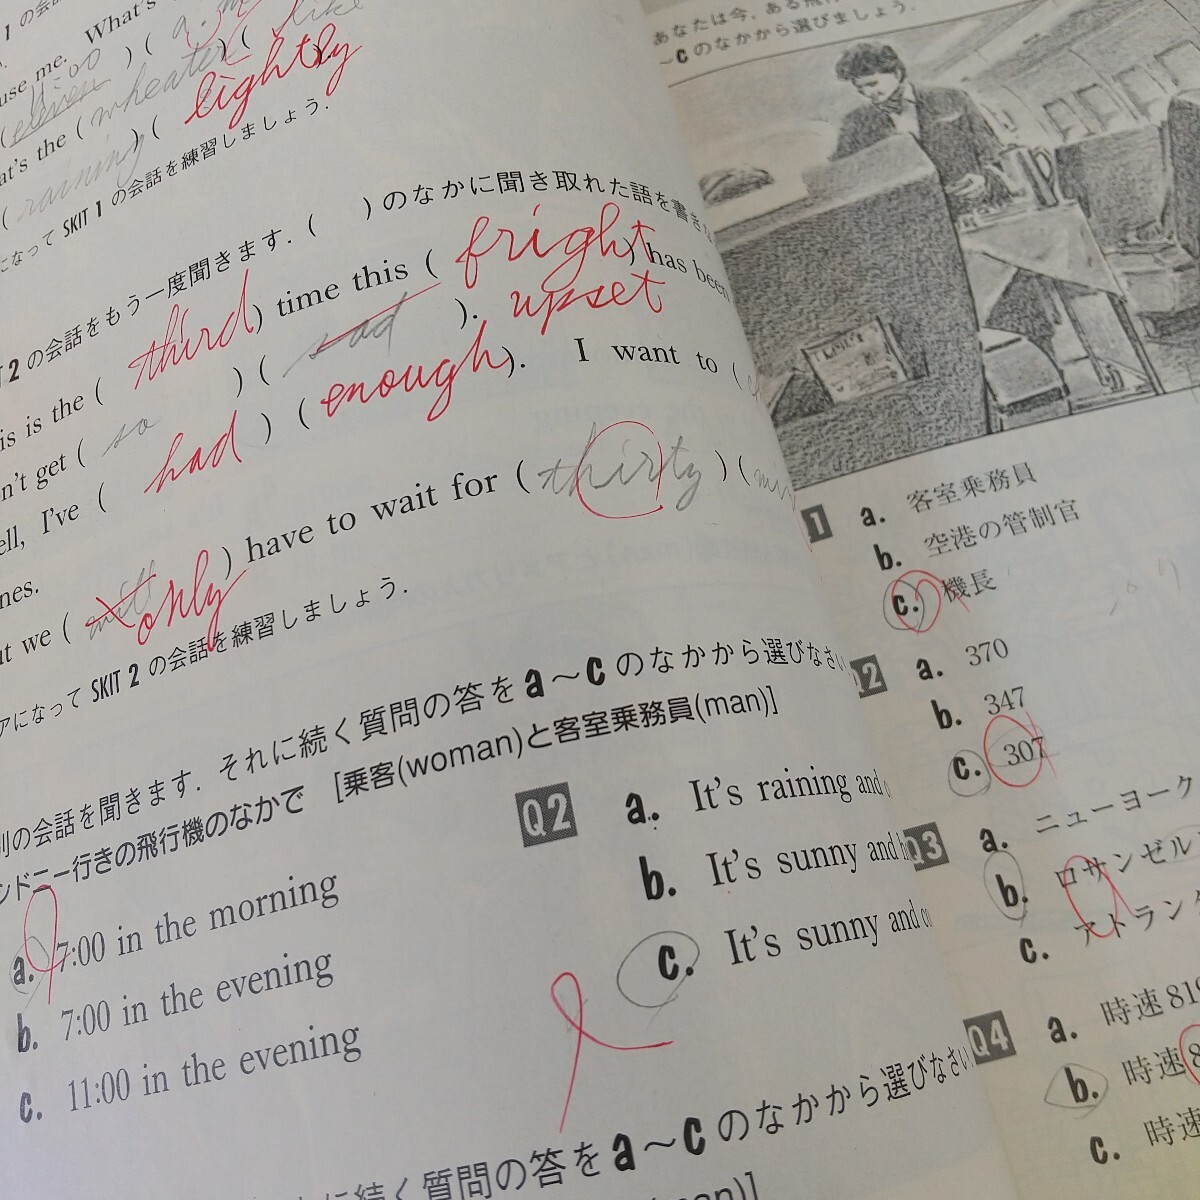 use me. What's
11:00
(eleven) (a.m
at's the (wheater) (lightly
(raining) (
になって SKIT 1 の会話を練習しましょう.
2 の会話をもう一度聞きます. ( )のなかに聞き取れた語を書き
is is the (third) time this (fright) has been
n't get (so) (sad). upset
ell, I've (had) (enough). I want to (
nes.
ut we (will only) have to wait for (thirty) (
アになって SKIT 2 の会話を練習しましょう.
別の会話を聞きます. それに続く質問の答をa～cのなかから選びなさい
ンドニー行きの飛行機のなかで [乗客(woman)と客室乗務員(man)]
a. 7:00 in the morning
b. 7:00 in the evening
c. 11:00 in the evening
Q2
a. It's raining and
b. It's sunny and
c. It's sunny and
に続く質問の答をa～cのなかから選びなさい
(man)]
あなたは今, ある飛
～cのなかから選びましょう.
1
a. 客室乗務員
b. 空港の管制官
c. 機長
Q2
a. 370
b. 347
c. 307
Q3
a. ニューヨーク
b. ロサンゼル
c. アトランタ
Q4
a. 時速 819
b. 時速 8
c. 時速